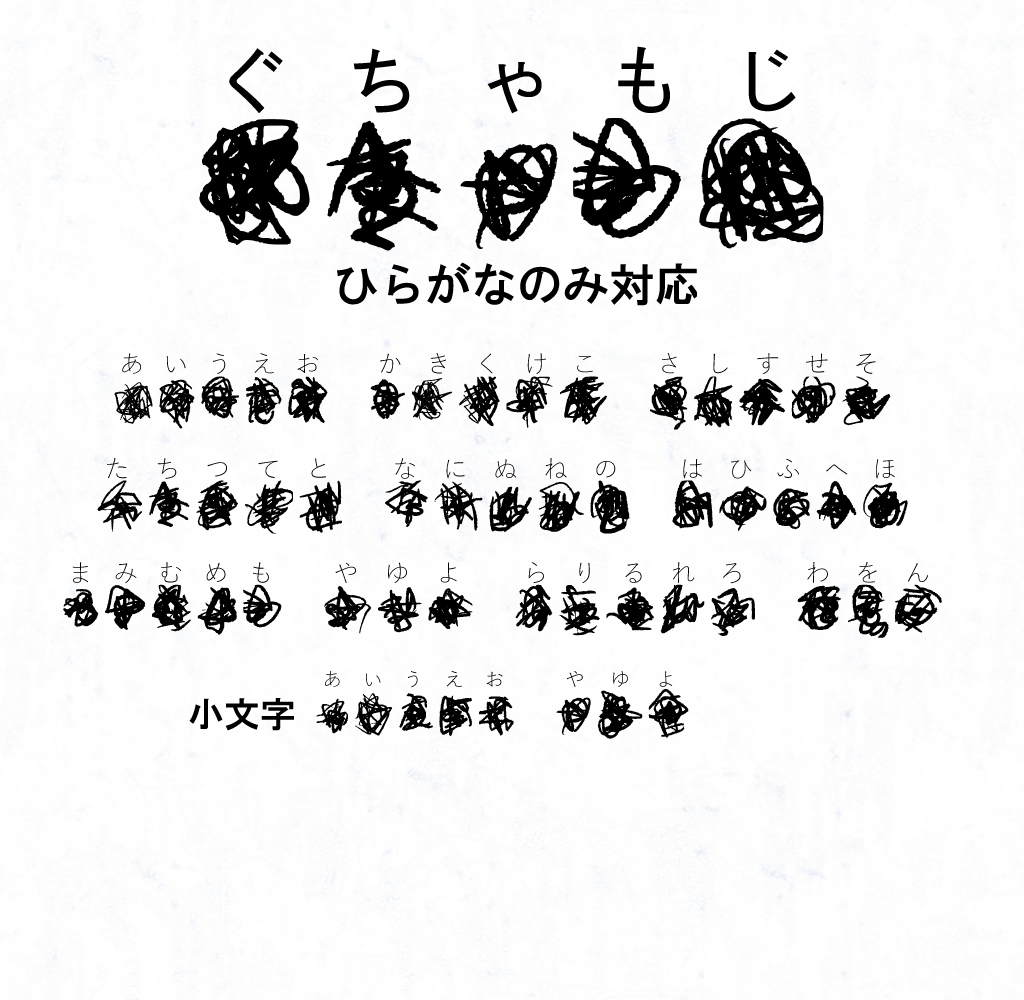 ぐちゃもじ
ひらがなのみ対応
あいうえお かきくけこ さしすせそ
たちつてと なにぬねの はひふへほ
まみむめも やゆよ らりるれろ わをん
小文字 あいうえお やゆよ